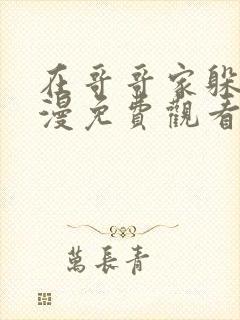 在哥哥家躲
漫免費觀看
萬長青